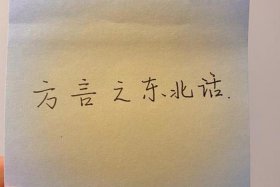 方言之东北话.